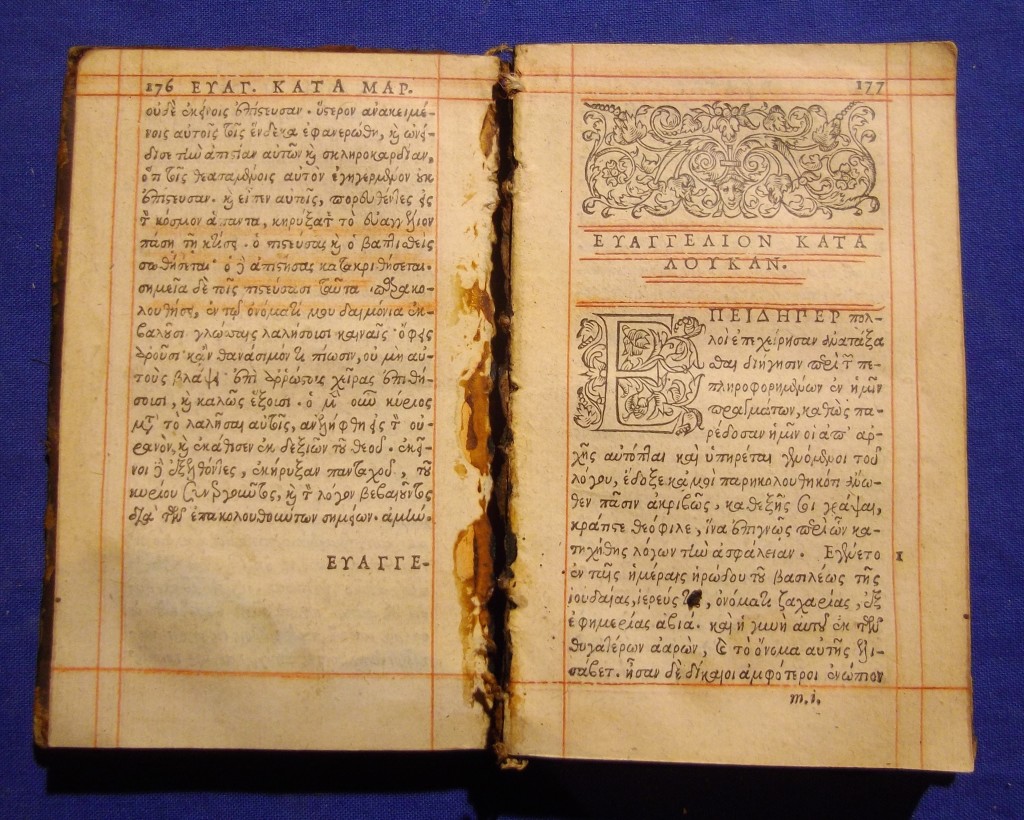 176 ΕΥΑΓ. ΚΑΤΑ ΜΑΡ.
οὐδὲ ἐκείνοις ἐπίστευσαν. ὕστερον ἀνακειμέ-
νοις αὐτοῖς τοῖς ἕνδεκα ἐφανερώθη, καὶ ὠνεί-
δισε τὴν ἀπιστίαν αὐτῶν καὶ σκληροκαρδίαν,
ὅτι τοῖς θεασαμένοις αὐτὸν ἐγηγερμένον οὐκ
ἐπίστευσαν. καὶ εἶπεν αὐτοῖς, πορευθέντες εἰς
τὸν κόσμον ἅπαντα, κηρύξατε τὸ εὐαγγέλιον
πάσῃ τῇ κτίσει. ὁ πιστεύσας καὶ ὁ βαπτισθεὶς
σωθήσεται· ὁ δὲ ἀπιστήσας κατακριθήσεται.
σημεῖα δὲ τοῖς πιστεύσασι ταῦτα παρακο-
λουθήσει, ἐν τῷ ὀνόματί μου δαιμόνια ἐκ-
βαλοῦσι· γλώσσαις λαλήσουσι καιναῖς· ὄφεις
ἀροῦσι· κἂν θανάσιμόν τι πίωσιν, οὐ μὴ αὐ-
τοὺς βλάψει· ἐπὶ ἀρρώστους χεῖρας ἐπιθή-
σουσι, καὶ καλῶς ἕξουσι. ὁ μὲν οὖν κύριος
μετὰ τὸ λαλῆσαι αὐτοῖς, ἀνελήφθη εἰς τὸν οὐ-
ρανὸν, καὶ ἐκάθισεν ἐκ δεξιῶν τοῦ θεοῦ. ἐκεῖ-
νοι δὲ ἐξελθόντες, ἐκήρυξαν πανταχοῦ, τοῦ
κυρίου συνεργοῦντος, καὶ τὸν λόγον βεβαιοῦντος
διὰ τῶν ἐπακολουθούντων σημείων. ἀμήν.
ΕΥΑΓΓΕ-
177
ΕΥΑΓΓΕΛΙΟΝ ΚΑΤΑ
ΛΟΥΚΑΝ.
ΕΠΕΙΔΗΓΕΡ πολ-
λοὶ ἐπεχείρησαν ἀνατάξα
σθαι διήγησιν περὶ τῶν πε-
πληροφορημένων ἐν ἡμῖν
πραγμάτων, καθὼς πα-
ρέδοσαν ἡμῖν οἱ ἀπ' ἀρ-
χῆς αὐτόπται καὶ ὑπηρέται γενόμενοι τοῦ
λόγου, ἔδοξε κᾀμοὶ παρηκολουθηκότι ἄνω-
θεν πᾶσιν ἀκριβῶς, καθεξῆς σοι γράψαι,
κράτιστε θεόφιλε, ἵνα ἐπιγνῷς περὶ ὧν κα-
τηχήθης λόγων τὴν ἀσφάλειαν. Εγένετο 1
ἐν ταῖς ἡμέραις ἡρώδου τοῦ βασιλέως τῆς
ἰουδαίας, ἱερεύς τις, ὀνόματι ζαχαρίας, ἐξ
ἐφημερίας ἀβιά. καὶ ἡ γυνὴ αὐτοῦ ἐκ τῶν
θυγατέρων ἀαρὼν, καὶ τὸ ὄνομα αὐτῆς ἐλι-
σάβετ. ἦσαν δὲ δίκαιοι ἀμφότεροι ἐνώπιον
m.i.